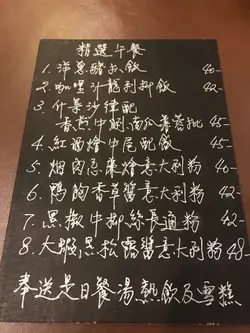 精選午餐
1. 洋蔥豬扒飯 40-
2. 咖喱汁龍利柳飯 42-
3. 什菜沙律配
香煎中蝦南瓜薯蓉批 45-
4. 紅酒燴牛尾配飯 45-
5. 烟肉忌廉燴意大利粉 40-
6. 鴨胸香草醬意大利粉 42-
7. 黑椒牛柳絲長通粉 42-
8. 大蝦,黑松露醬意大利粉 48-
奉送是日餐湯,熱飲及雪糕